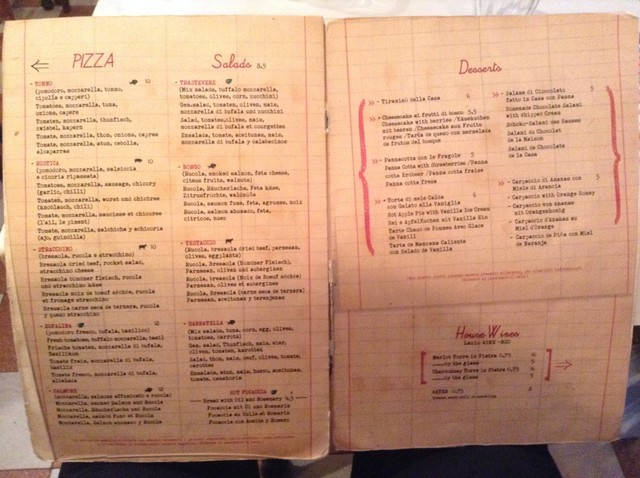 PIZZA
- TONNO 10
(pomodoro, mozzarella, tonno,
cipolla e capperi)
Tomatoes, mozzarella, tuna,
onions, capers
Tomaten, mozzarella, thunfisch,
zwiebel, kapern
Tomates, mozzarella, thon, onions, capres
Tomates, mozzarella, atun, cebolla,
alcaparras
- RUSTICA 10
(pomodoro, mozzarella, salsiccia
e cicoria ripassata)
Tomatoes, mozzarella, sausage, chicory
(garlic, chilli)
Tomaten, mozzarella, wurst und chichree
(knoblauch, chili)
Tomates, mozzarella, saucisse et chicoree
(l'ail, le piment)
Tomate, mozzarella, salchicha y achicoria
(ajo, guindilla)
- STRACCHINO 10
(bresaola, rucola e stracchino)
Bresaola dried beef, rocket salad,
stracchino cheese
Bresaola bundner fleisch, rucola
und stracchino käse
Bresaola noix de boeuf séchée, rucola
et fromage stracchino
Bresaola carne seca de ternera, rucola
y queso stracchino
- BUFALINA 12
(pomodoro fresco, bufala, basilico)
Fresh tomatoes, buffalo mozzarella, basil
Frische tomaten, mozzarella di bufala,
Basilikum
Tomate frais, mozzarella di bufala,
basilic
Tomate fresco, mozzarella di bufala,
albahaca
- SALMONE 12
(mozzarella, salmone affumicato e rucola)
Mozzarella, smoked Salmon and Rucola
Mozzarella, Räucherlachs und Rucola
Mozzarella, salmon fumé et Rucola
Mozzarella, Salmon ahumado y Rucola
Salads 8.5
- TRASTEVERE
(Mix salads, buffalo mozzarella,
tomatoes, olives, corn, zucchini)
Gem.salad, tomaten, oliven, mais,
mozzarella di bufala und zucchini
Salad, tomates, olives, mais,
mozzarella di bufala et courgettes
Ensalada, tomate, aceitunas, mais,
mozzarella di bufala y calabacines
- BORGO
(Rucola, smoked salmon, feta cheese,
citrus fruits, walnuts)
Rucola, Räucherlachs, Feta käse,
Zitrusfrüchte, walnuß
Rucola, saumon fumé, feta, agrumes, noix
Rucola, salmon ahumado, feta,
citricos, nuez
- TESTACCIO
(Rucola, bresaola dried beef, parmesan,
olives, eggplants)
Rucola, Bresaola (Bündner Fleisch),
Parmesan, oliven und auberginen
Rucola, bresaola (Noix de Boeuf séchée)
Parmesan, olives et aubergines
Rucola, Bresaola (carne seca de ternera)
Parmesan, aceitunas y berenjenas
- GARBATELLA
(Mix salads, tuna, corn, egg, olives,
tomatoes, carrots)
Gem. salad, Thunfisch, mais, eier,
oliven, tomaten, karotten
Salad, thon, mais, oeuf, olives, tomate,
carottes
Ensalada, atun, mais, huevo, aceitunas,
tomate, zanahoria
HOT FOCACCIA
Bread with Oil and Rosemary 4.5
Focaccia mit Öl und Rosmarin
Focaccia au Huile et Romarin
Focaccia con Aceite y Romero
Desserts
- Tiramisù della Casa 4
- Cheesecake ai frutti di bosco 5.5
Cheesecake with berries / Käsekuchen
mit beeren / Cheesecake aux fruits
rouges / Tarta de queso con mermelada
de frutos del bosque
- Pannacotta con le Fragole 5
Panna Cotta with Strawberries / Panna
cotta Erdbeer / Panna cotta fraise
Panna cotta fresa
- Torta di mele Calda 4
con Gelato alla Vaniglia
Hot Apple Pie with Vanilla Ice Cream
Eis e Apfelkuchen mit Vanilla Eis
Tarte Chaud de Pommes Avec Glace
de Vanill
Tarta de Manzana Caliente
con Helado de Vanilla
- Salame di Cioccolato 5
fatto in Casa con Panna
Homemade Chocolate Salami
with Whipped Cream
Schoko-Salami des Hauses
Salami du Chocolat
de la Maison
Salami de Chocolate
de la Casa
- Carpaccio di Ananas con 5
Miele di Arancia
- Carpaccio with Orange Honey
- Carpaccio von Ananas
mit Orangenhonig
- Carpaccio d'Ananas au
Miel d'Orange
- Carpaccio de Piña con Miel
de Naranja
House Wines
Lazio WINE - RED
Merlot Torre in Pietra 0,75
by the glass
Chardonnay Torre in Pietra 0,75
by the glass
WATER 0,75